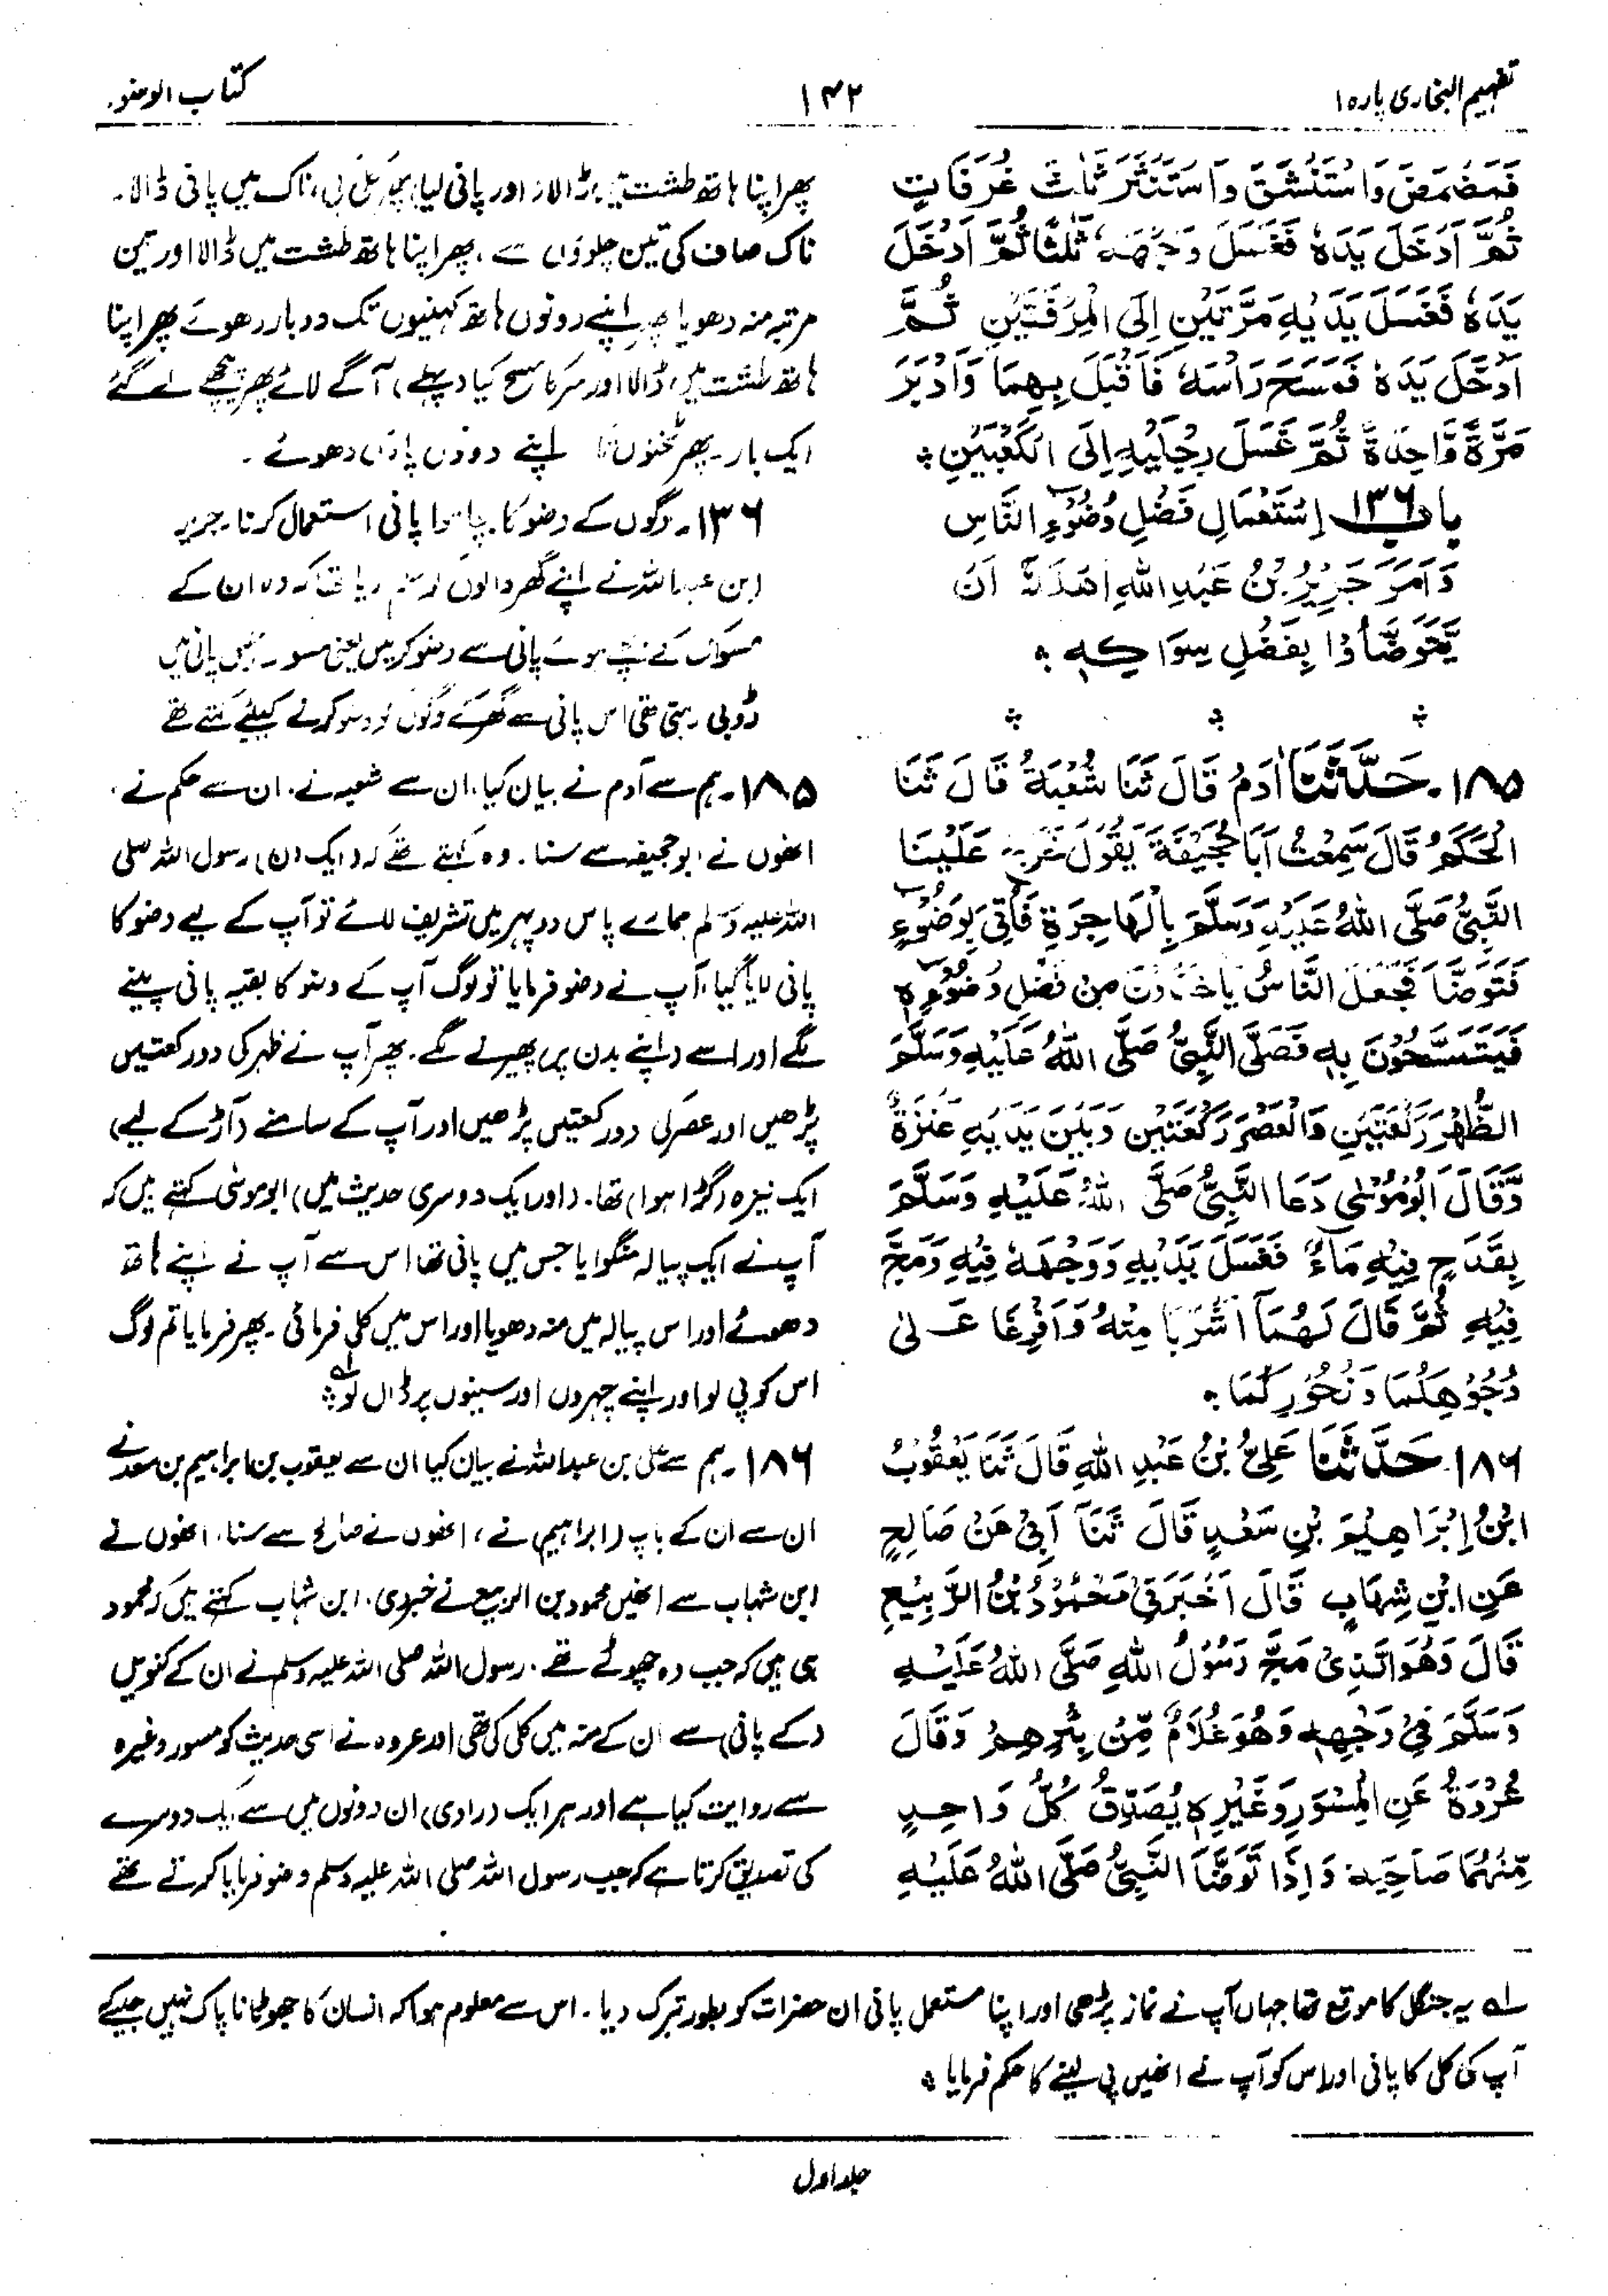 تفہیم البخاری پارہ ۱
۱۴۲
کتاب الوضوء
فَمَضْمَضَ وَاسْتَنْشَقَ وَاسْتَنْثَرَ ثَلٰثَ غُرَفَاتٍ
ثُمَّ اَدْخَلَ يَدَهٗ فَغَسَلَ وَجْهَهٗ ثَلٰثًا ثُمَّ اَدْخَلَ
يَدَهٗ فَغَسَلَ يَدَيْهِ مَرَّتَيْنِ اِلَى الْمِرْفَقَيْنِ ثُمَّ
اَدْخَلَ يَدَهٗ فَمَسَحَ رَاْسَهٗ فَاَقْبَلَ بِهِمَا وَاَدْبَرَ
مَرَّةً وَّاحِدَةً ثُمَّ غَسَلَ رِجْلَيْهِ اِلَى الْكَعْبَيْنِ
باب ۱۳۶ اِسْتَعْمَالِ فَضْلِ وُضُوْءِ النَّاسِ
وَاَمَرَ جَرِيْرُ بْنُ عَبْدِ اللهِ اَهْلَهٗ اَنْ
يَّتَوَضَّأُوْا بِفَضْلِ سِوَاكِهٖ
۱۸۵۔ حَدَّثَنَا اٰدَمُ قَالَ ثَنَا شُعْبَةُ قَالَ ثَنَا
الْحَكَمُ قَالَ سَمِعْتُ اَبَا جُحَيْفَةَ يَقُوْلُ خَرَجَ عَلَيْنَا
النَّبِيُّ صَلَّى اللهُ عَلَيْهِ وَسَلَّمَ بِالْهَاجِرَةِ فَاُتِيَ بِوَضُوْءٍ
فَتَوَضَّاَ فَجَعَلَ النَّاسُ يَاْخُذُوْنَ مِنْ فَضْلِ وَضُوْءِهٖ
فَيَتَمَسَّحُوْنَ بِهٖ فَصَلَّى النَّبِيُّ صَلَّى اللهُ عَلَيْهِ وَسَلَّمَ
الظُّهْرَ رَكْعَتَيْنِ وَالْعَصْرَ رَكْعَتَيْنِ وَبَيْنَ يَدَيْهِ عَنَزَةٌ
وَّقَالَ اَبُوْمُوْسٰى دَعَا النَّبِيُّ صَلَّى اللهُ عَلَيْهِ وَسَلَّمَ
بِقَدَحٍ فِيْهِ مَاءٌ فَغَسَلَ يَدَيْهِ وَوَجْهَهٗ فِيْهِ وَمَجَّ
فِيْهِ ثُمَّ قَالَ لَهُمَا اشْرَبَا مِنْهُ وَاَفْرِغَا عَلٰى
وُجُوْهِكُمَا وَنُحُوْرِكُمَا
۱۸۶۔ حَدَّثَنَا عَلِيُّ بْنُ عَبْدِ اللهِ قَالَ ثَنَا يَعْقُوْبُ
ابْنُ اِبْرَاهِيْمَ بْنِ سَعْدٍ قَالَ ثَنَا اَبِيْ عَنْ صَالِحٍ
عَنِ ابْنِ شِهَابٍ قَالَ اَخْبَرَنِيْ مَحْمُوْدُ بْنُ الرَّبِيْعِ
قَالَ وَهُوَ الَّذِيْ مَجَّ رَسُوْلُ اللهِ صَلَّى اللهُ عَلَيْهِ
وَسَلَّمَ فِيْ وَجْهِهٖ وَهُوَ غُلَامٌ مِّنْ بِئْرِهِمْ وَقَالَ
عُرْوَةُ عَنِ الْمِسْوَرِ وَغَيْرِهٖ يُصَدِّقُ كُلُّ وَاحِدٍ
مِّنْهُمَا صَاحِبَهٗ وَاِذَا تَوَضَّاَ النَّبِيُّ صَلَّى اللهُ عَلَيْهِ
پھر اپنا ہاتھ طشت میں ڈالا اور پانی لیا پھر کلی کی، ناک میں پانی ڈالا۔
ناک صاف کی تین چلوؤں سے، پھر اپنا ہاتھ طشت میں ڈالا اور تین
مرتبہ منہ دھویا پھر اپنے دونوں ہاتھ کہنیوں تک دو بار دھوئے پھر اپنا
ہاتھ طشت میں ڈالا اور سر کا مسح کیا (پہلے) آگے لائے پھر پیچھے لے گئے
ایک بار۔ پھر ٹخنوں تک اپنے دونوں پاؤں دھوئے۔
۱۳۶۔ لوگوں کے وضو کا بچا ہوا پانی استعمال کرنا۔ جریر
ابن عبداللہ نے اپنے گھر والوں کو حکم دیا تھا کہ وہ ان کے
مسواک کے بچے ہوئے پانی سے وضو کر لیں یعنی مسواک جس پانی میں
ڈوبی رہتی تھی اس پانی سے گھر کے لوگوں کو وضو کرنے کیلئے کہتے تھے
۱۸۵۔ ہم سے آدم نے بیان کیا، ان سے شعبہ نے، ان سے حکم نے،
انھوں نے ابوجحیفہ سے سنا۔ وہ کہتے تھے کہ (ایک دن) رسول اللہ صلی
اللہ علیہ وسلم ہمارے پاس دوپہر میں تشریف لائے تو آپ کے لیے وضو کا
پانی لایا گیا، آپ نے وضو فرمایا تو لوگ آپ کے وضو کا بقیہ پانی پینے
لگے اور اسے (اپنے بدن پر) پھیرنے لگے۔ پھر آپ نے ظہر کی دو رکعتیں
پڑھیں اور عصر کی دو رکعتیں پڑھیں اور آپ کے سامنے (آڑ کے لیے)
ایک نیزہ (گڑا ہوا) تھا۔ (اور ایک دوسری حدیث میں) ابوموسیٰ کہتے ہیں کہ
آپ نے ایک پیالہ منگوایا جس میں پانی تھا اس سے آپ نے اپنے ہاتھ
دھوئے اور اس پیالہ میں منہ دھویا اور اس میں کلی فرمائی۔ پھر فرمایا تم لوگ
اس کو پی لو اور اپنے چہروں اور سینوں پر ڈال لو ؎۱
۱۸۶۔ ہم سے علی بن عبداللہ نے بیان کیا ان سے یعقوب بن ابراہیم بن سعد نے
ان سے ان کے باپ (ابراہیم) نے، انھوں نے صالح سے سنا، انھوں نے
ابن شہاب سے انھیں محمود بن الربیع نے خبر دی، ابن شہاب کہتے ہیں کہ محمود
ہی ہیں کہ جب وہ چھوٹے تھے، رسول اللہ صلی اللہ علیہ وسلم نے ان کے کنویں
(کے پانی) سے ان کے منہ میں کلی کی تھی اور عروہ نے اسی حدیث کو مسور وغیرہ
سے روایت کیا ہے اور ہر ایک (راوی) ان دونوں میں سے ایک دوسرے
کی تصدیق کرتا ہے کہ جب رسول اللہ صلی اللہ علیہ وسلم وضو فرمایا کرتے تھے
؎۱ یہ جنگل کا موقع تھا جہاں آپ نے نماز پڑھی اور اپنا مستعمل پانی ان حضرات کو بطور تبرک دیا۔ اس سے معلوم ہوا کہ انسان کا جھوٹا ناپاک نہیں جیسے کے
آپ کی کلی کا پانی اور اس کو آپ نے انھیں پی لینے کا حکم فرمایا
جلد اول